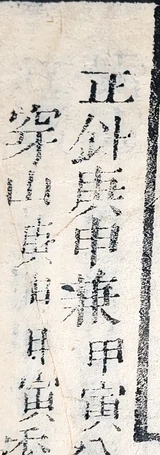 正針庚申兼甲寅八
穿山庚申甲寅